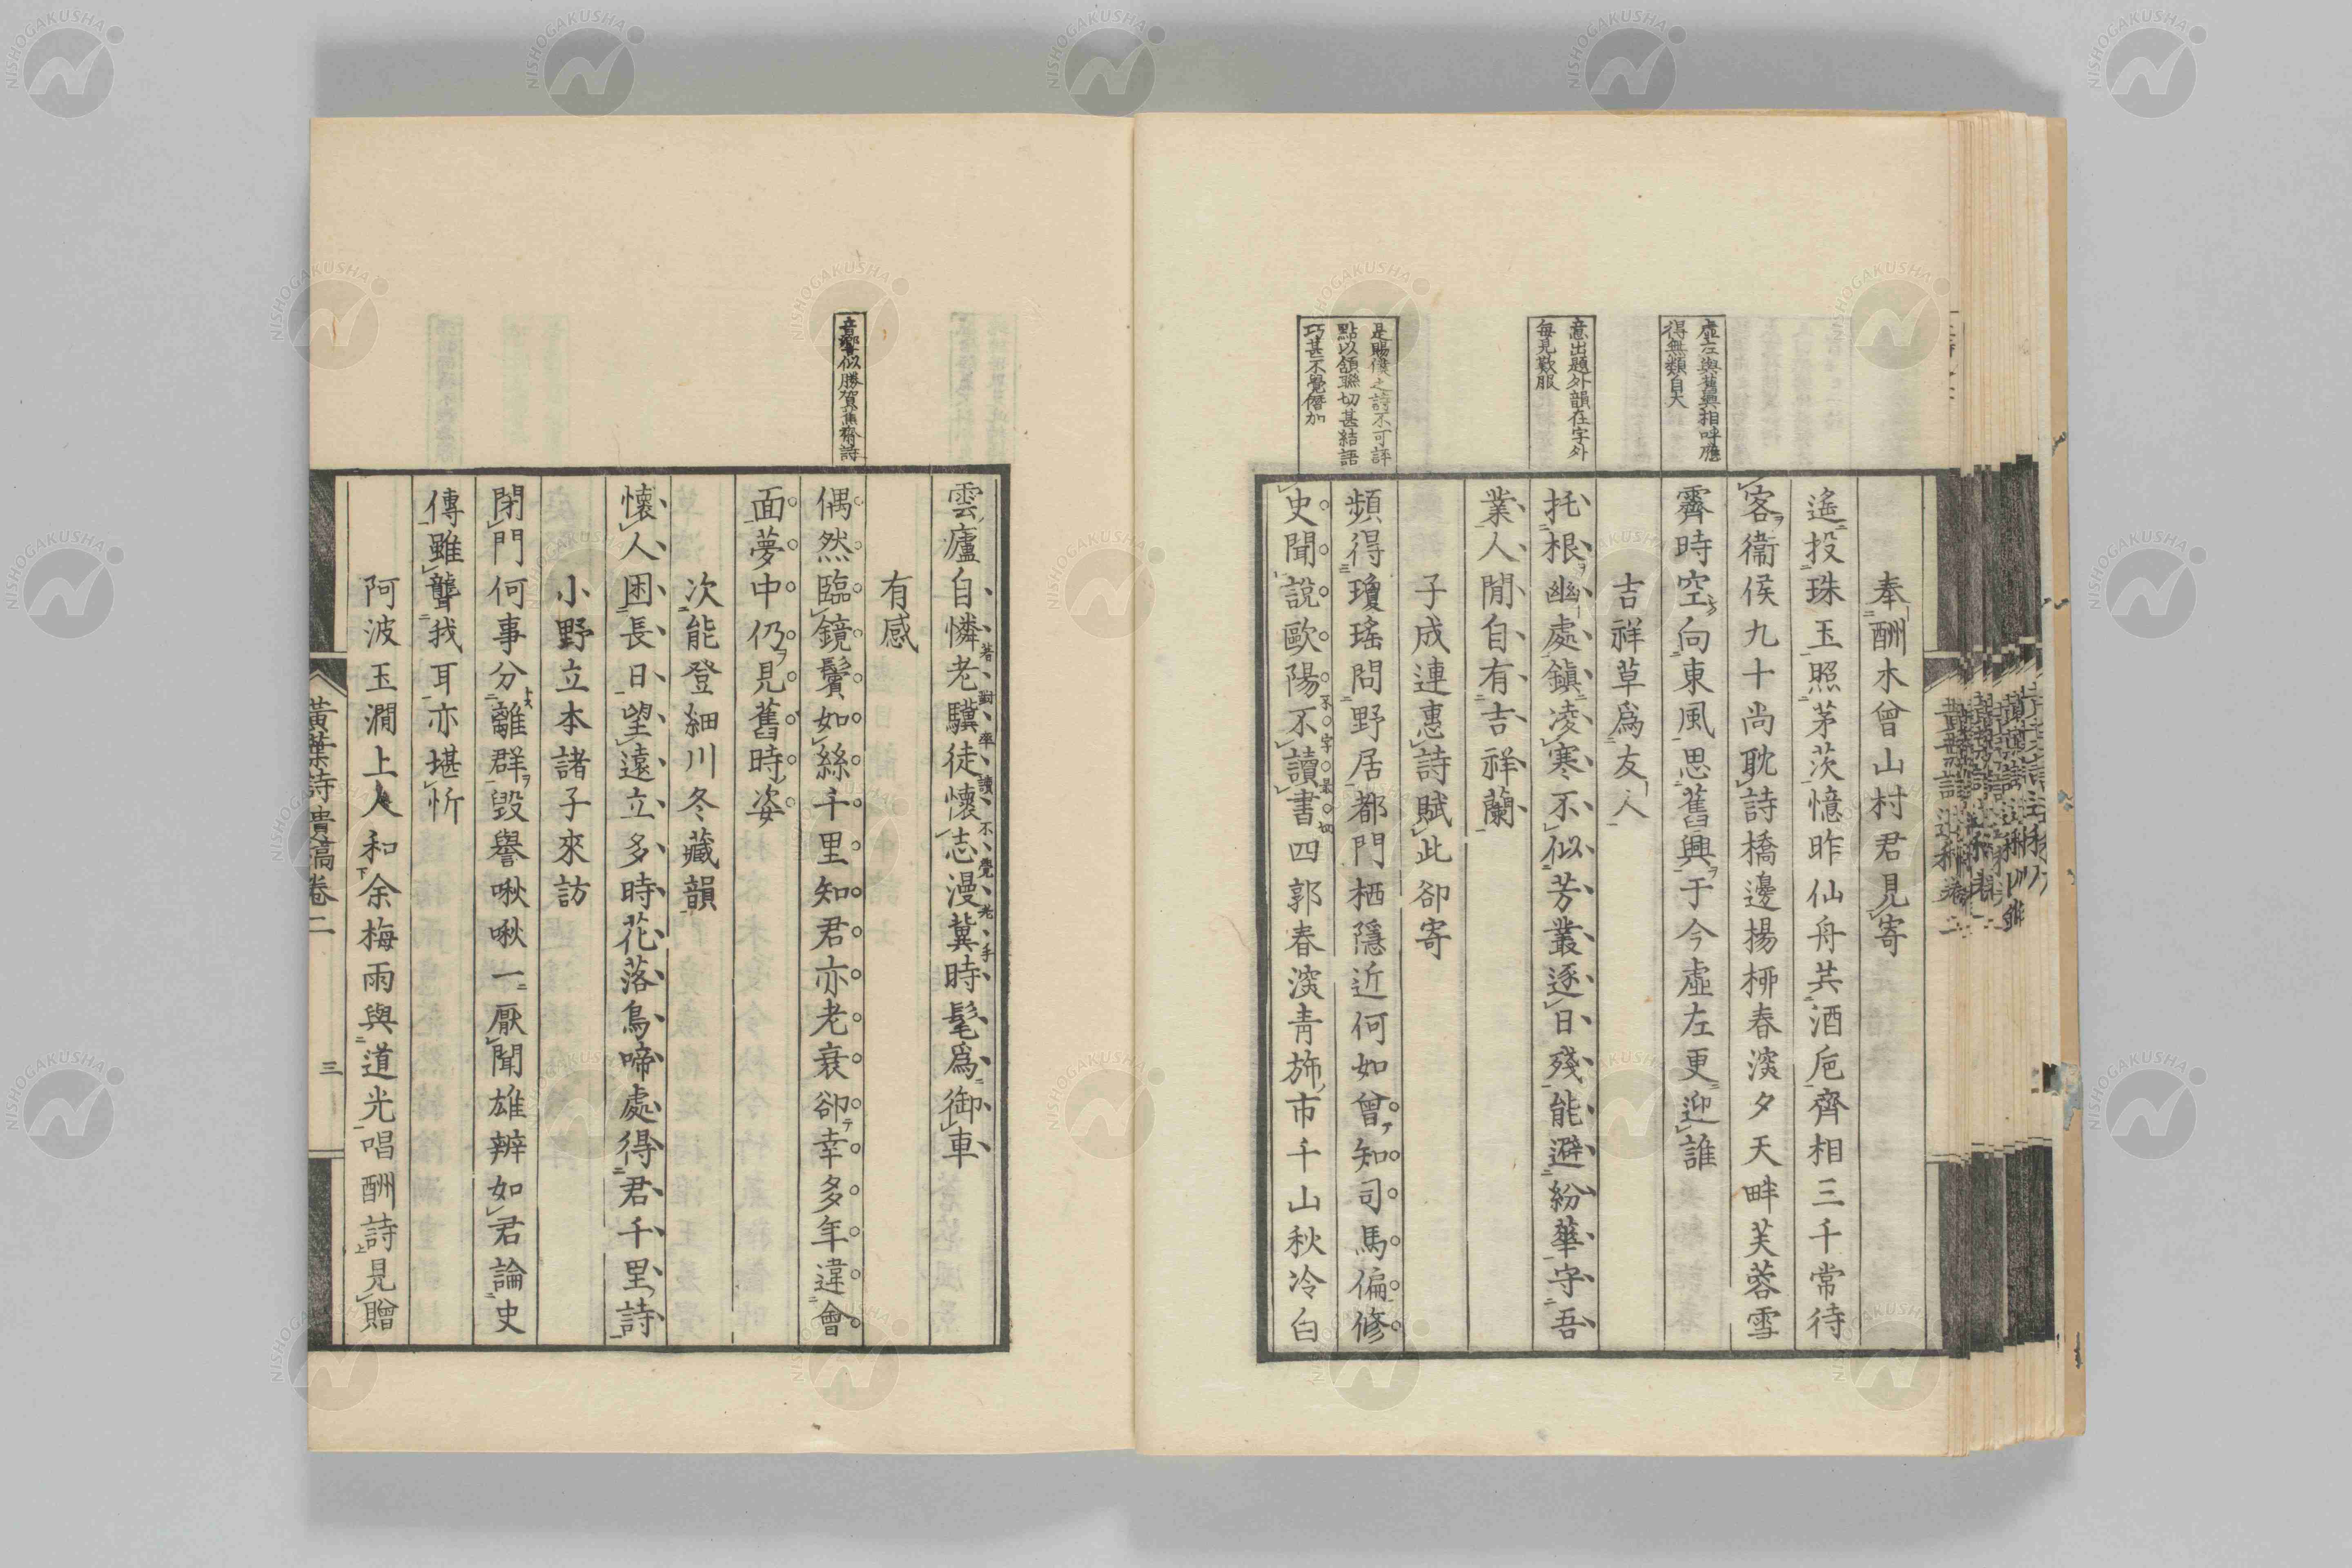 奉酬木曾山村君見寄
遙投珠玉照茅茨憶昨仙舟共酒巵齊相三千常待
客衞侯九十尚耽詩橋邊楊柳春濱夕天畔芙蓉雪
霽時空向東風思舊興于今虛左更迎誰
吉祥草爲友人
托根幽處鎭凌寒不似芳叢逐日殘能避紛華守吾
業人閒自有吉祥蘭
子成連惠詩賦此卻寄
頻得瓊瑤問野居都門栖隱近何如曾知司馬偏修
史聞說歐陽不讀書四郭春深靑旆市千山秋冷白
不字最切
虛左與舊興相呼應
得無類自大
意出題外韻在字外
每見歎服
是賜僕之詩不可評
點以頷聯切甚結語
巧甚不覺僭加
雲廬自憐老驥徒懷志漫冀時髦爲御車
若對率讀不覺老手
有感
偶然臨鏡鬢如絲千里知君亦老衰卻幸多年違會
面夢中仍見舊時姿
次能登細川冬藏韻
懷人困長日望遠立多時花落鳥啼處得君千里詩
小野立本諸子來訪
閉門何事分離群毀譽啾啾一厭聞雄辨如君論史
傳雖聾我耳亦堪忻
阿波玉澗上人和余梅雨與道光唱酬詩見贈
音響似勝賀蕉齋詩
黃葉詩遺稿卷二
三
NISHOGAKUSHA